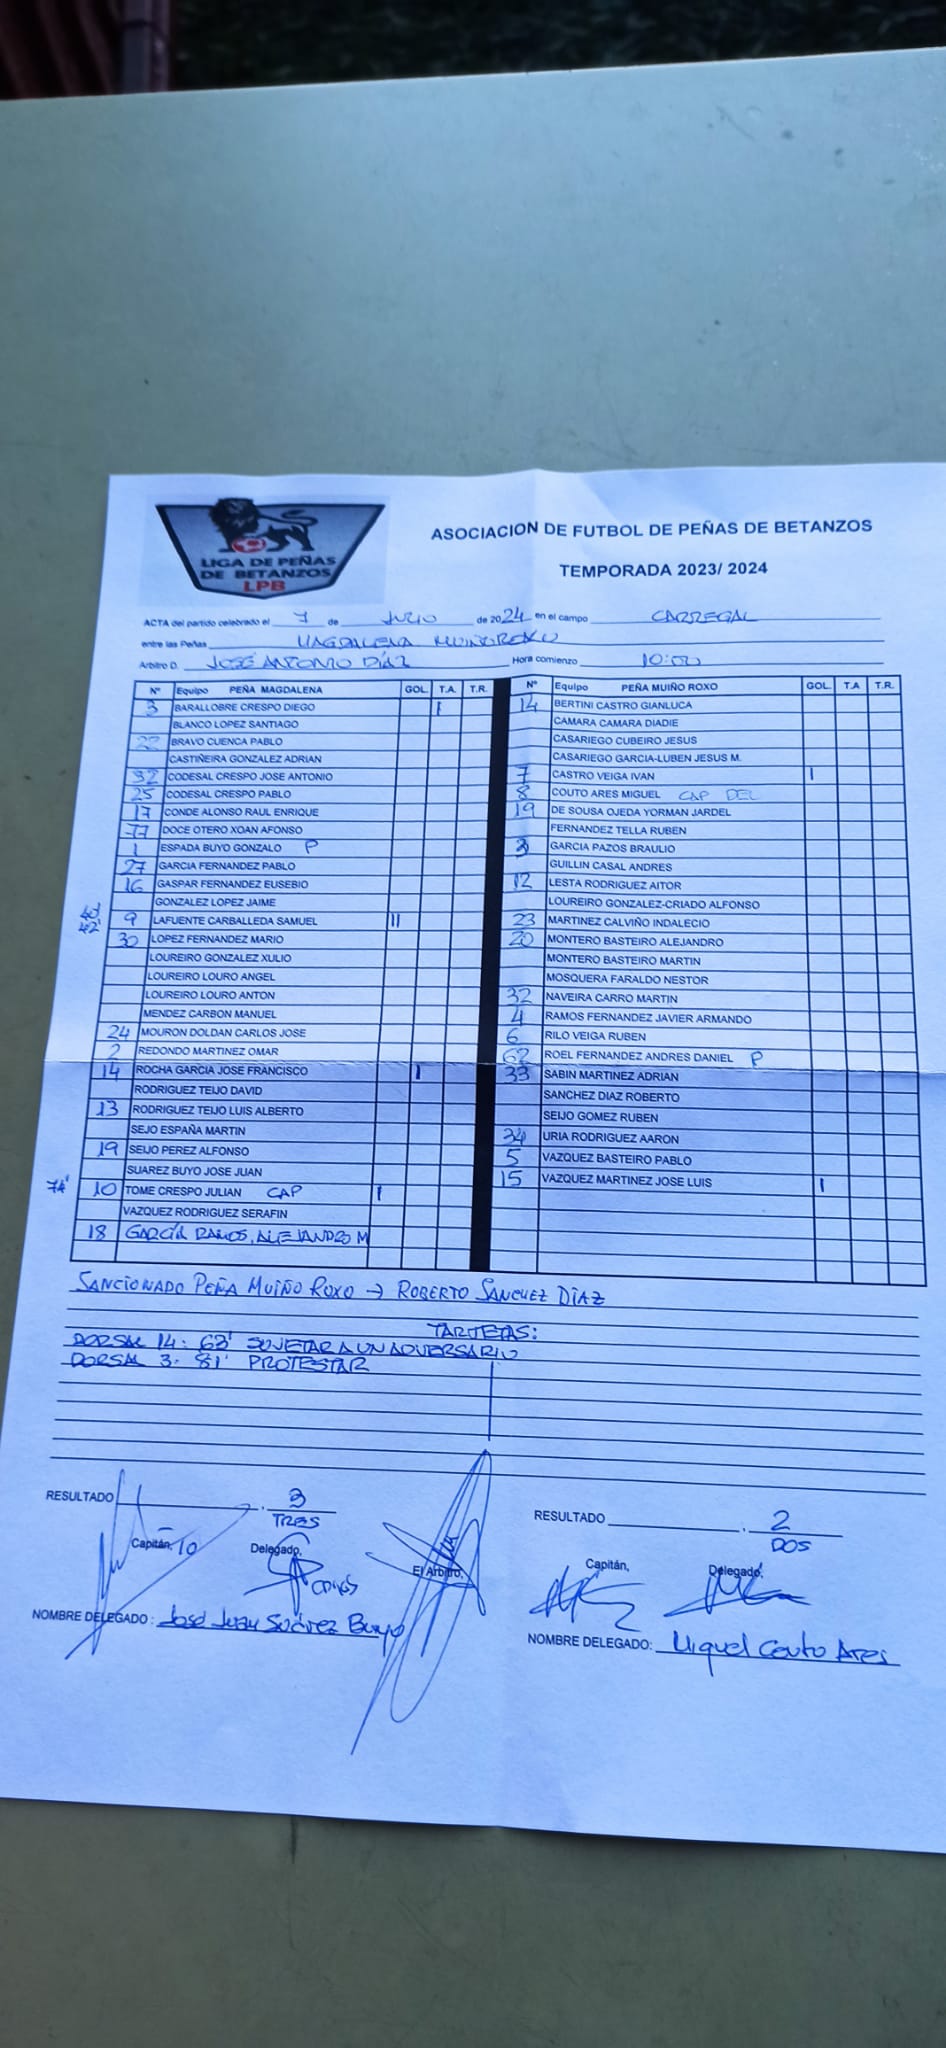 LIGA DE PEÑAS
DE BETANZOS
LPB
ASOCIACION DE FUTBOL DE PEÑAS DE BETANZOS
TEMPORADA 2023/ 2024
ACTA del partido celebrado el 7 de JULIO de 2024 en el campo CARREGAL
entre las Peñas MAGDALENA MUIÑOROXO
Arbitro D. JOSÉ ANTONIO DÍAZ Hora comienzo 10:00
Nº Equipo PEÑA MAGDALENA GOL T.A. T.R. Nº Equipo PEÑA MUIÑO ROXO GOL T.A T.R.
3 BARALLOBRE CRESPO DIEGO I 14 BERTINI CASTRO GIANLUCA
BLANCO LOPEZ SANTIAGO CAMARA CAMARA DIADIE
22 BRAVO CUENCA PABLO CASARIEGO CUBEIRO JESUS
CASTIÑEIRA GONZALEZ ADRIAN CASARIEGO GARCIA-LUBEN JESUS M.
32 CODESAL CRESPO JOSE ANTONIO 7 CASTRO VEIGA IVAN I
25 CODESAL CRESPO PABLO 8 COUTO ARES MIGUEL CAP DEL
17 CONDE ALONSO RAUL ENRIQUE 19 DE SOUSA OJEDA YORMAN JARDEL
77 DOCE OTERO XOAN AFONSO FERNANDEZ TELLA RUBEN
1 ESPADA BUYO GONZALO P 3 GARCIA PAZOS BRAULIO
27 GARCIA FERNANDEZ PABLO GUILLIN CASAL ANDRES
16 GASPAR FERNANDEZ EUSEBIO 12 LESTA RODRIGUEZ AITOR
GONZALEZ LOPEZ JAIME LOUREIRO GONZALEZ-CRIADO ALFONSO
42' 9 LAFUENTE CARBALLEDA SAMUEL II 23 MARTINEZ CALVIÑO INDALECIO
30 LOPEZ FERNANDEZ MARIO 20 MONTERO BASTEIRO ALEJANDRO
LOUREIRO GONZALEZ XULIO MONTERO BASTEIRO MARTIN
LOUREIRO LOURO ANGEL MOSQUERA FARALDO NESTOR
LOUREIRO LOURO ANTON 32 NAVEIRA CARRO MARTIN
MENDEZ CARBON MANUEL 4 RAMOS FERNANDEZ JAVIER ARMANDO
24 MOURON DOLDAN CARLOS JOSE 6 RILO VEIGA RUBEN
2 REDONDO MARTINEZ OMAR 62 ROEL FERNANDEZ ANDRES DANIEL P
14 ROCHA GARCIA JOSE FRANCISCO I 33 SABIN MARTINEZ ADRIAN
RODRIGUEZ TEIJO DAVID SANCHEZ DIAZ ROBERTO
13 RODRIGUEZ TEIJO LUIS ALBERTO SEIJO GOMEZ RUBEN
SEJO ESPAÑA MARTIN 34 URIA RODRIGUEZ AARON
19 SEIJO PEREZ ALFONSO 5 VAZQUEZ BASTEIRO PABLO
SUAREZ BUYO JOSE JUAN 15 VAZQUEZ MARTINEZ JOSE LUIS I
74' 10 TOME CRESPO JULIAN CAP I
VAZQUEZ RODRIGUEZ SERAFIN
18 GARCÍA RAMOS, ALEJANDRO M
SANCIONADO PEÑA MUIÑO ROXO → ROBERTO SÁNCHEZ DÍAZ
TARJETAS:
DORSAL 14: 63' SUJETAR A UN ADVERSARIO
DORSAL 3: 81' PROTESTAR
RESULTADO 3 RESULTADO 2
TRES DOS
Capitán, 10 Delegado, El Arbitro, Capitán, Delegado,
NOMBRE DELEGADO: José Juan Suárez Buyo NOMBRE DELEGADO: Miguel Couto Ares